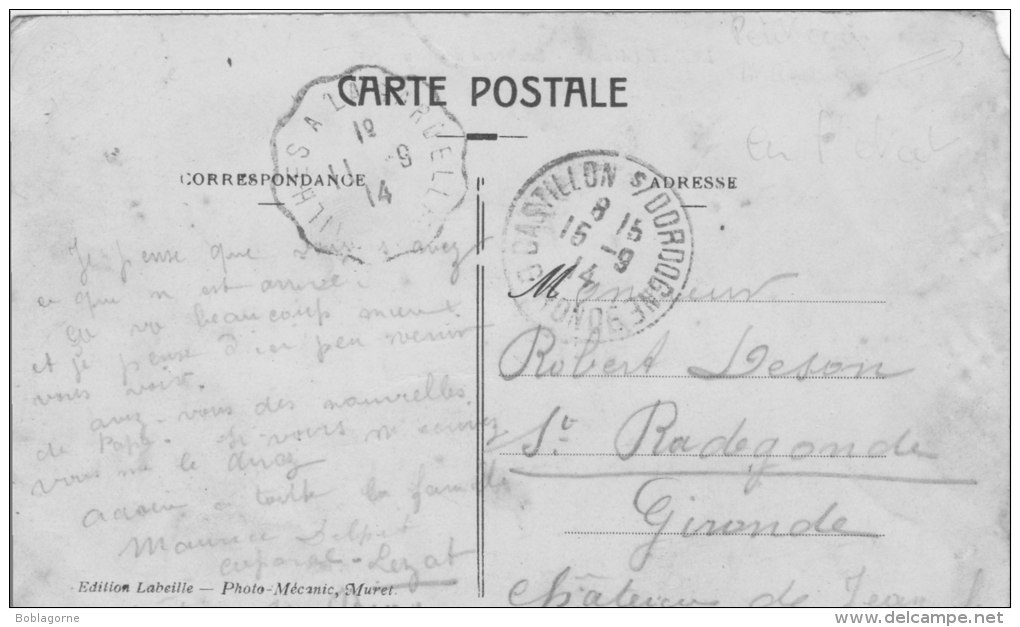 CARTE POSTALE
CORRESPONDANCE
ADRESSE
CASTILLON S/DORDOGNE
GIRONDE
8 15
15 -9
14
1º
11 -9
14
Je pense que vous savez
ce que m est arrivé.
Ça va beaucoup mieux
et je pense d'ici peu venir
vous voir.
avez-vous des nouvelles
de Papa. Si vous m'écrivez
vous me le direz
adieu a toute la famille
Maurice Delpis
caporal - Lezat
Monsieur
Robert Deson
St Radegonde
Gironde
Château de Jean
Edition Labeille — Photo-Mécanic, Muret.
Boblagorne
http://www.delcampe.net